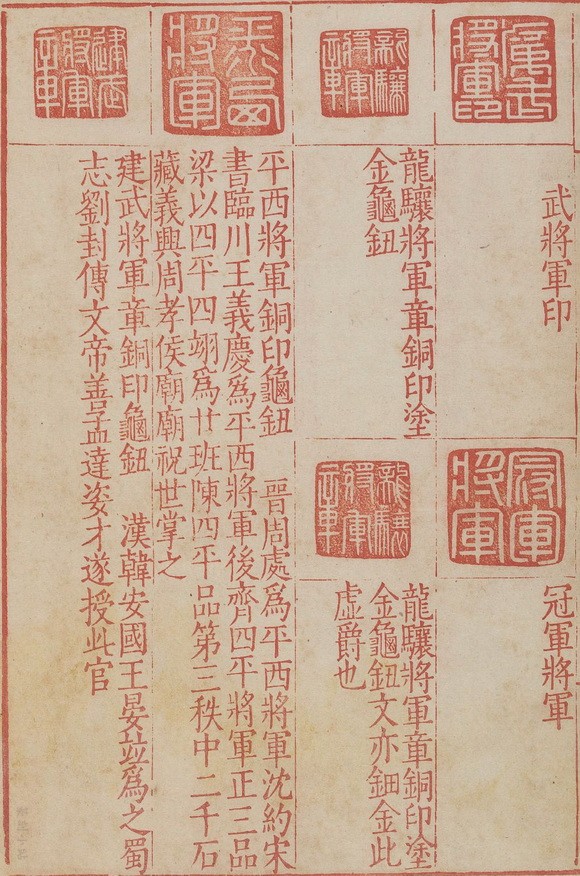 廣武
將軍印
武將軍印
冠軍
將軍
冠軍將軍
龍驤
將軍章
龍驤將軍章銅印塗
金龜鈕
龍驤
將軍章
龍驤將軍章銅印塗
金龜鈕文亦鈿金此
虛爵也
平西
將軍
平西將軍銅印龜鈕 晉周處爲平西將軍沈約宋
書臨川王義慶爲平西將軍後齊四平將軍正三品
梁以四平四翊爲廿班陳四平品第三秩中二千石
藏義興周孝侯廟廟祝世掌之
建武
將軍章
建武將軍章銅印龜鈕 漢韓安國王晏竝爲之蜀
志劉封傳文帝善孟達姿才遂授此官